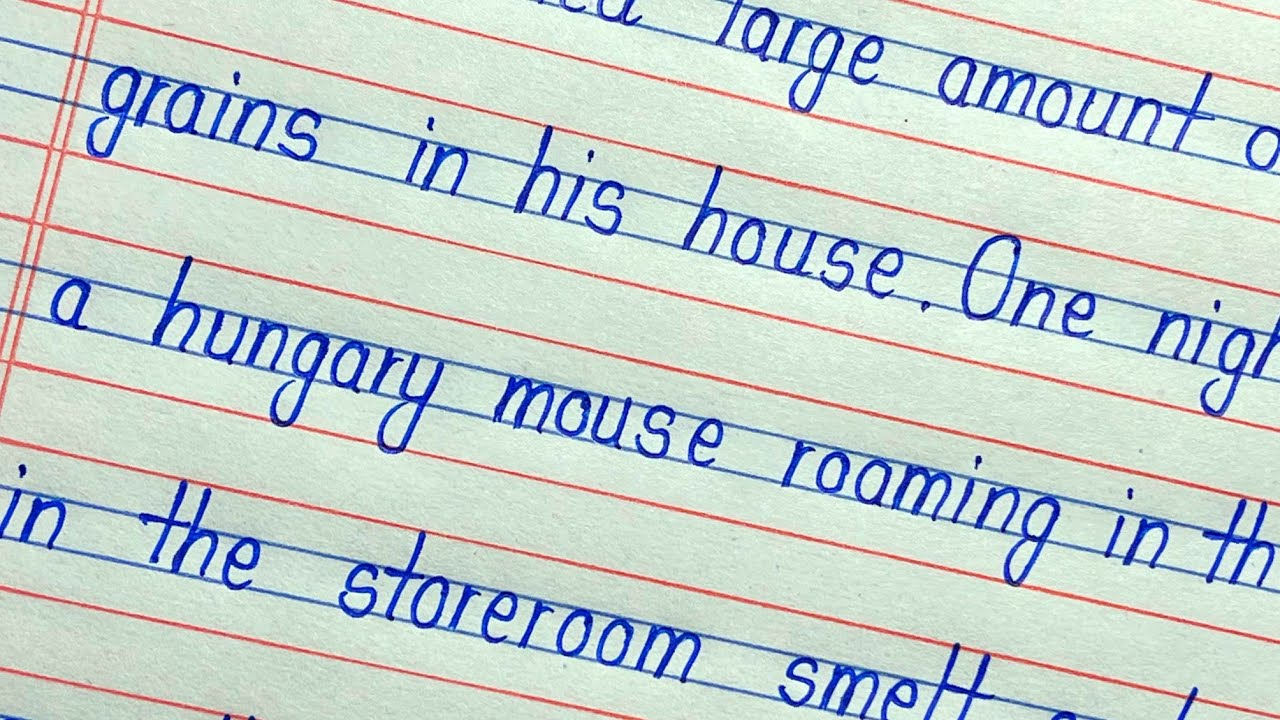 large amount
grains in his house. One
a hungary mouse roaming in
in the storeroom smelt